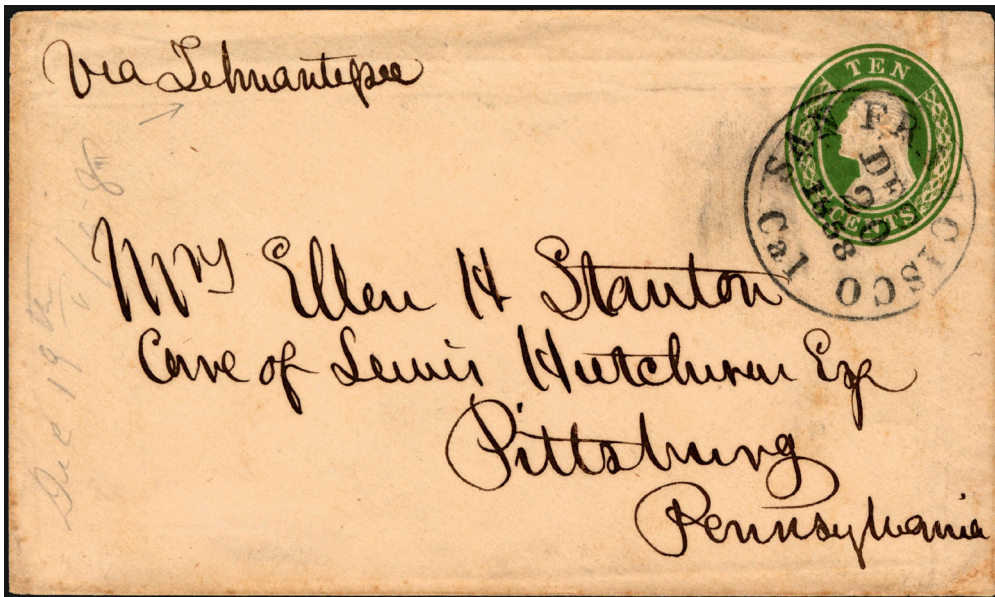 Via Tehuantepec
TEN
CENTS
SAN FRANCISCO Cal
DE
20
1858
Mrs Ellen H Stanton
Care of Lewis Hutchison Esq
Pittsburg
Pennsylvania
Dec 19th